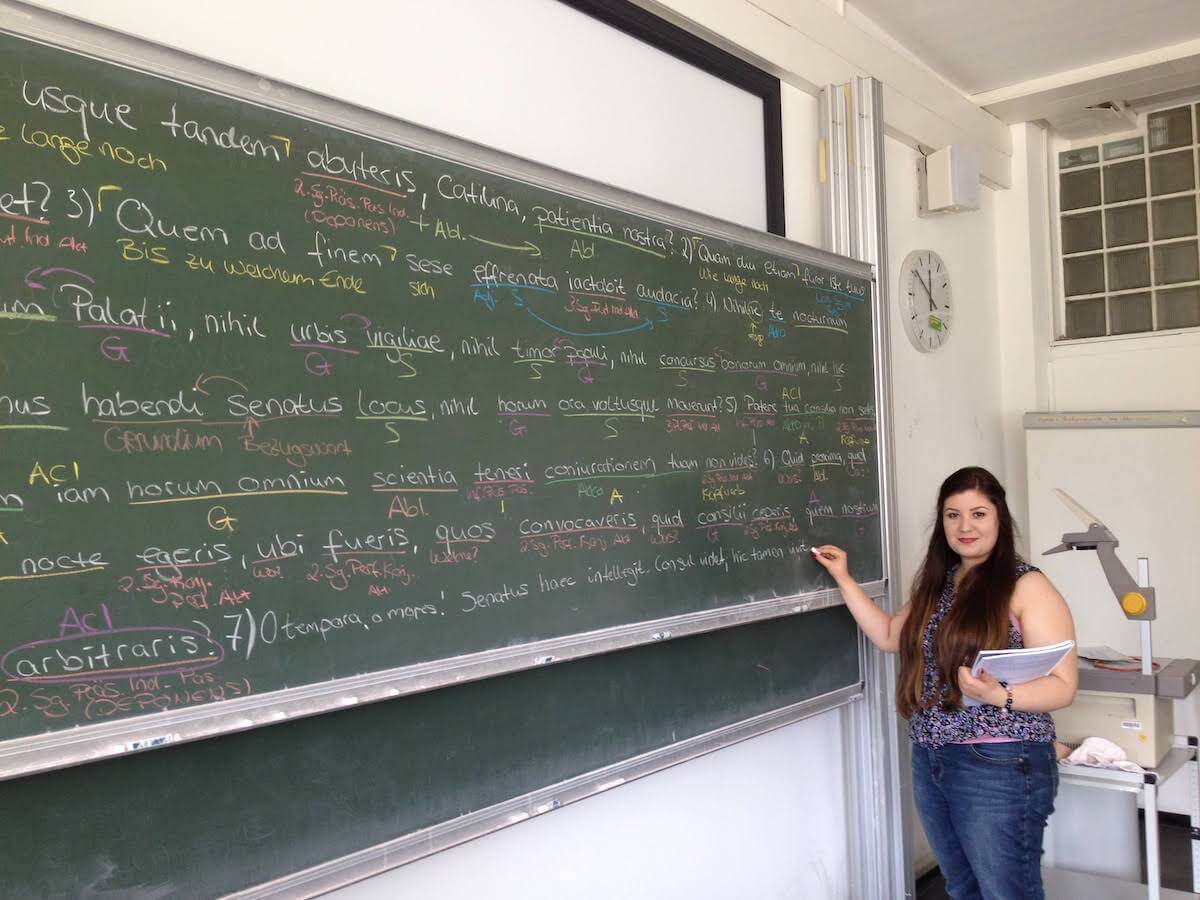 usque tandem abuteris, Catilina, patientia nostra? 2) Quam diu etiam furor iste tuus
Lange noch
2. Sg. Präs. Pas Ind.
(Deponens)
+ Abl.
Abl.
Wie lange noch
et? 3) Quem ad finem sese effrenata iactabit audacia? 4) Nihilne te nocturnum
Ind Akt
Bis zu welchem Ende
sich
Adj. S
3. Sg. Fut Ind Akt
S
Akko
um Palatii, nihil urbis vigiliae, nihil timor populi, nihil concursus bonorum omnium, nihil hic
G G S S G S G S
habendi senatus locus, nihil horum ora voltusque moverunt? 5) Patere tua consilia non
Gerundium Bezugswort S G S
ACI
A
ACI
iam horum omnium scientia teneri coniurationem tuam non vides? 6) Quid proxima, quid
G Abl. Inf. Pas. Präs. Akko
Abl.
I A Kopfverb A
nocte egeris, ubi fueris, quos convocaveris, quid consilii ceperis, quem nostrum
2. Sg. Konj.
Perf. Akt
wo?
2. Sg. Perf. Konj.
Akt
Welche?
2. Sg. Perf. Konj. Akt
was?
G
G
ACI
arbitraris? 7) O tempora, o mores! Senatus haec intellegit. Consul videt, hic tamen vivi
2. Sg. Präs. Ind. Pas
(DEPONENS)